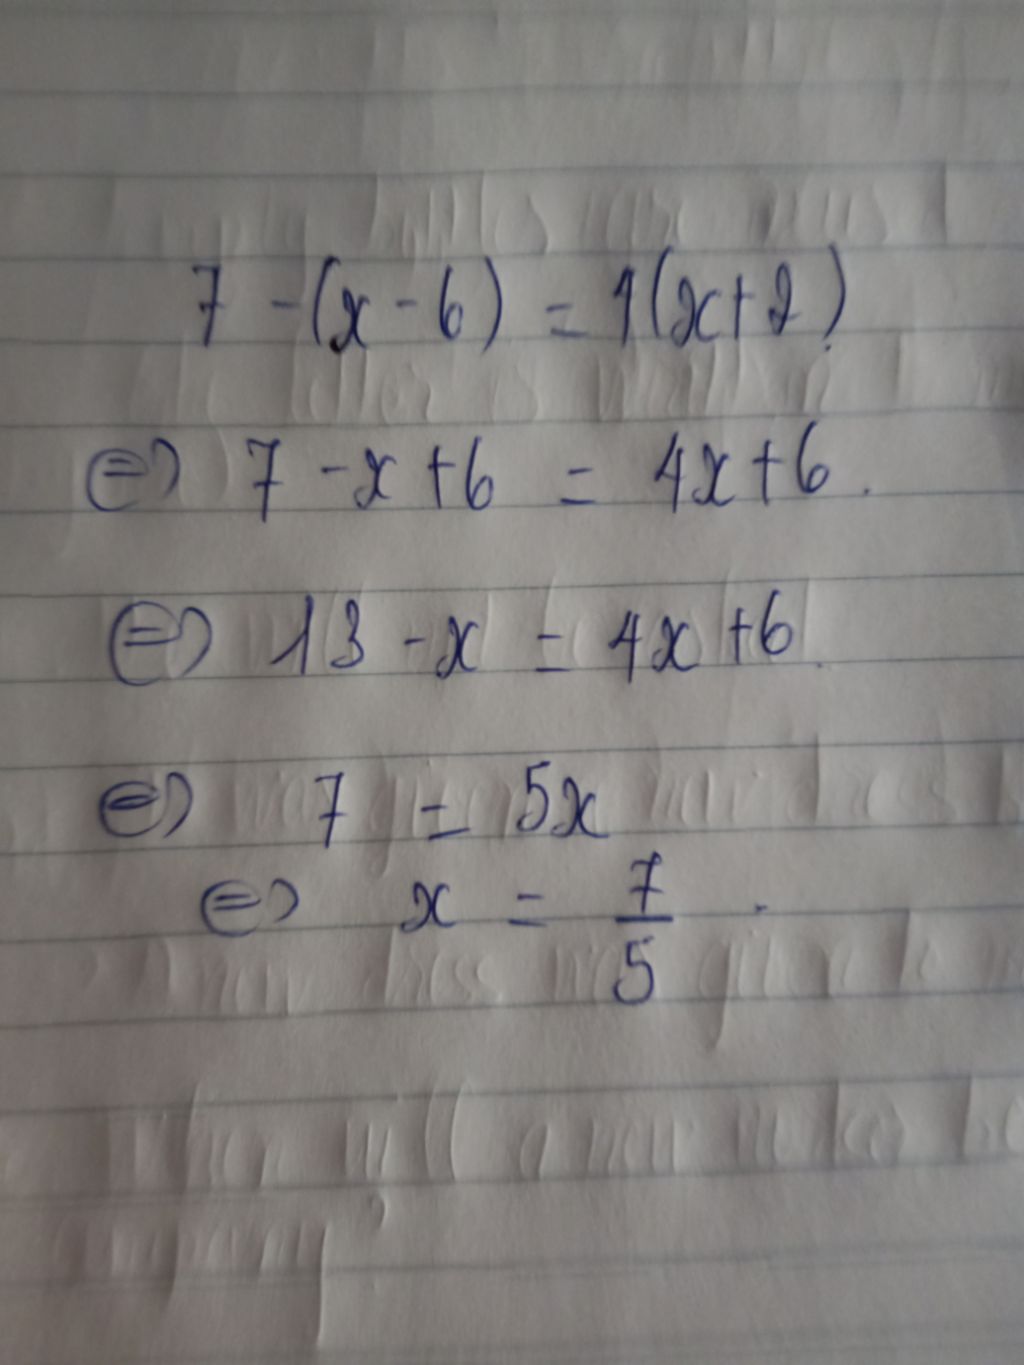 7 - (x - 6) = 4(x + 2)
⇔ 7 - x + 6 = 4x + 6.
⇔ 13 - x = 4x + 6.
⇔ 7 = 5x
⇔ x = 7/5.